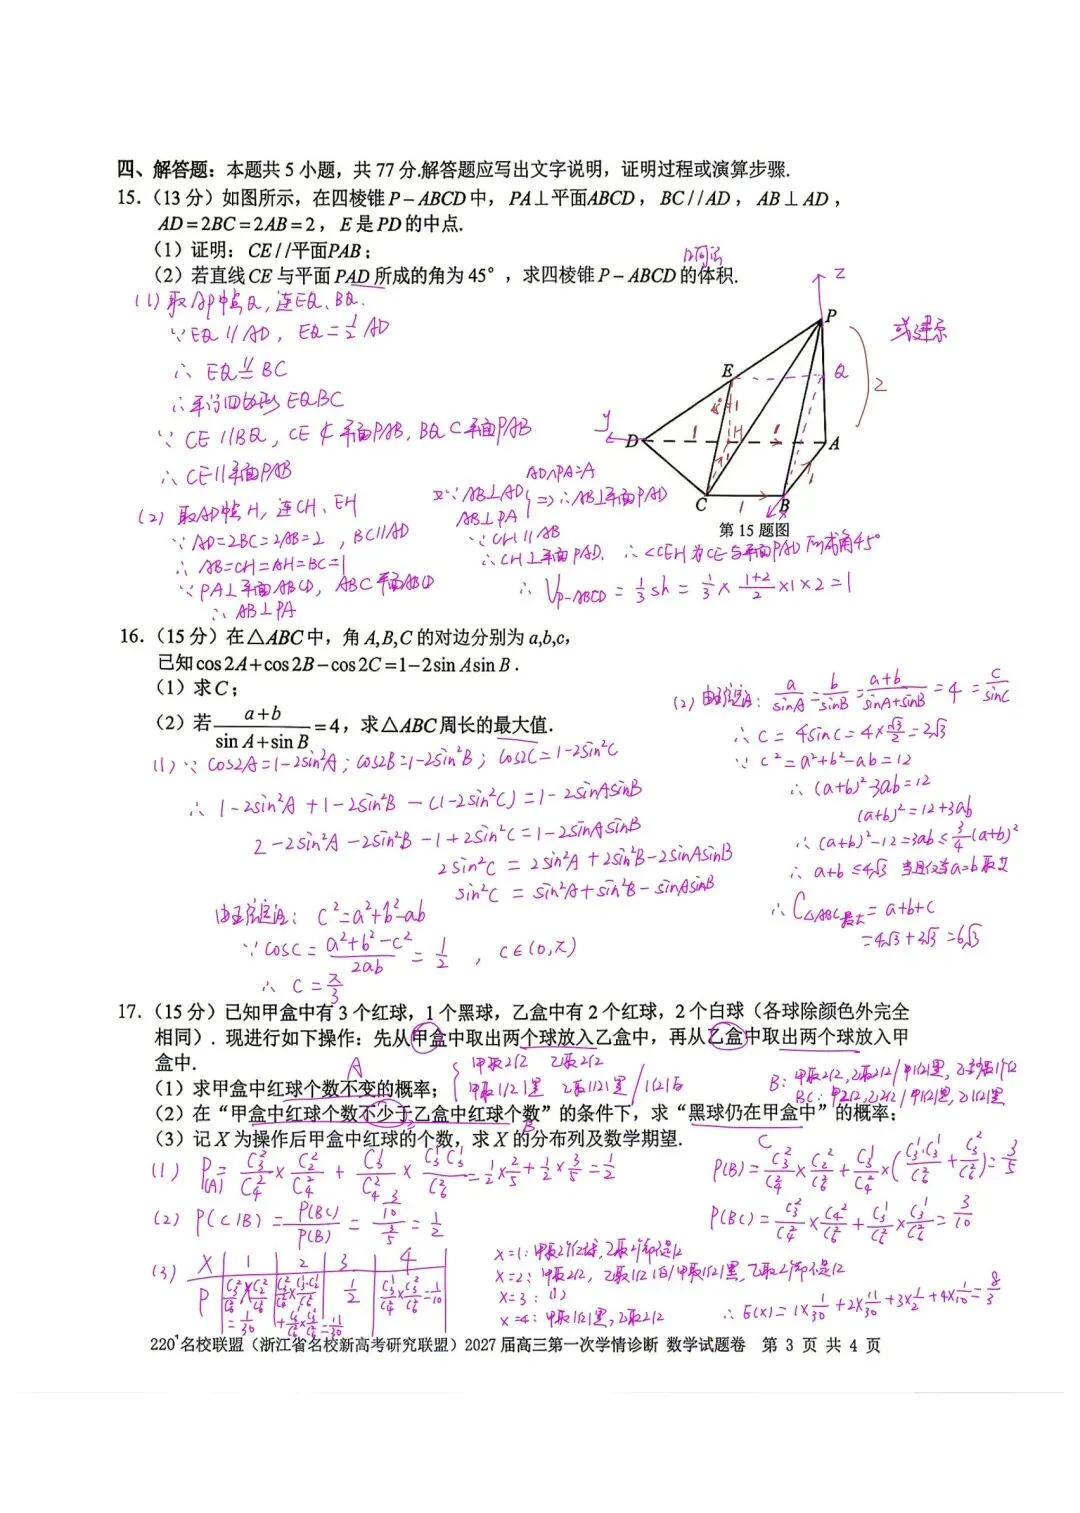 四、解答题：本题共5小题，共77分.解答题应写出文字说明，证明过程或演算步骤.
15.（13分）如图所示，在四棱锥P－ABCD中，PA⊥平面ABCD，BC//AD，AB⊥AD，
AD=2BC=2AB=2，E是PD的中点.
（1）证明：CE//平面PAB；
（2）若直线CE与平面PAD所成的角为45°，求四棱锥P－ABCD的体积.
(1) 取AP中点Q, 连EQ、BQ.
∵ EQ∥AD, EQ=½AD
∴ EQ∥=BC
∴ 平行四边形EQBC
∵ CE∥BQ, CE⊄平面PAB, BQ⊂平面PAB
∴ CE∥平面PAB
(2) 取AD中点H, 连CH、EH
∵ AD=2BC=2AB=2, BC∥AD
∴ AB=CH=AH=BC=1
∵ PA⊥平面ABCD, AB⊂平面ABCD
∴ AB⊥PA
又∵ AB⊥AD
AB⊥PA
AD∩PA=A
⇒ ∴ AB⊥平面PAD
∵ CH∥AB
∴ CH⊥平面PAD. ∴ ∠CEH为CE与平面PAD所成角45°
∴ V_{P-ABCD} = 1/3 Sh = 1/3 × (1+2)/2 ×1×2=1
或建系
z
P
E
Q
2
y
D
H
A
C
B
x
1
1
1
1
第15题图
16.（15分）在△ABC中，角A,B,C的对边分别为a,b,c，
已知cos2A+cos2B−cos2C=1−2sinAsinB.
（1）求C；
（2）若(a+b)/(sinA+sinB)=4，求△ABC周长的最大值.
(1) ∵ cos2A=1−2sin²A; cos2B=1−2sin²B; cos2C=1−2sin²C
∴ 1−2sin²A+1−2sin²B−(1−2sin²C)=1−2sinAsinB
2−2sin²A−2sin²B−1+2sin²C=1−2sinAsinB
2sin²C=2sin²A+2sin²B−2sinAsinB
sin²C=sin²A+sin²B−sinAsinB
由正弦定理: c²=a²+b²−ab
∵ cosC=(a²+b²−c²)/2ab=1/2, C∈(0,π)
∴ C=π/3
(2) 由正弦定理: a/sinA=b/sinB=(a+b)/(sinA+sinB)=4=c/sinC
∴ c=4sinC=4×√3/2=2√3
∵ c²=a²+b²−ab=12
∴ (a+b)²−3ab=12
(a+b)²=12+3ab
∴ (a+b)²−12=3ab≤3/4(a+b)²
∴ a+b≤4√3 当且仅当a=b取
∴ C_{△ABC最大}=a+b+c
=4√3+2√3=6√3
17.（15分）已知甲盒中有3个红球，1个黑球，乙盒中有2个红球，2个白球（各球除颜色外完全
相同）. 现进行如下操作：先从甲盒中取出两个球放入乙盒中，再从乙盒中取出两个球放入甲
盒中.
（1）求甲盒中红球个数不变的概率；
（2）在“甲盒中红球个数不少于乙盒中红球个数”的条件下，求“黑球仍在甲盒中”的概率；
（3）记X为操作后甲盒中红球的个数，求X的分布列及数学期望.
A
B
C
甲取2红 乙取2红
甲取1红1黑 乙取1红1黑/1红1白
(1) P(A)=C₃²/C₄²×C₂²/C₄²+C₃¹/C₄²×C₃¹C₃¹/C₆²=1/2×2/5+1/2×3/5=1/2
(2) P(C|B)=P(BC)/P(B)=(3/10)/(3/5)=1/2
P(B)=C₃²/C₄²×C₂²/C₆²+C₃¹/C₄²×(C₃¹·C₃¹/C₆²+C₃²/C₆²)=3/5
P(BC)=C₃²/C₄²×C₄²/C₆²+C₃¹/C₆²×C₃¹/C₆²=3/10
(3) X 1 2 3 4
P =1/30 =11/30 1/2 C₃¹/C₄²×C₃²/C₆²=1/10
X=2: 甲取2红, 乙取1红1白/甲取1红1黑, 乙取2个都不是红
X=3: (1)
X=4: 甲取1红1黑, 乙取2红
∴ E(X)=1×1/30+2×11/30+3×1/2+4×1/10=8/3
220名校联盟（浙江省名校新高考研究联盟）2027届高三第一次学情诊断 数学试题卷 第 3 页 共 4 页